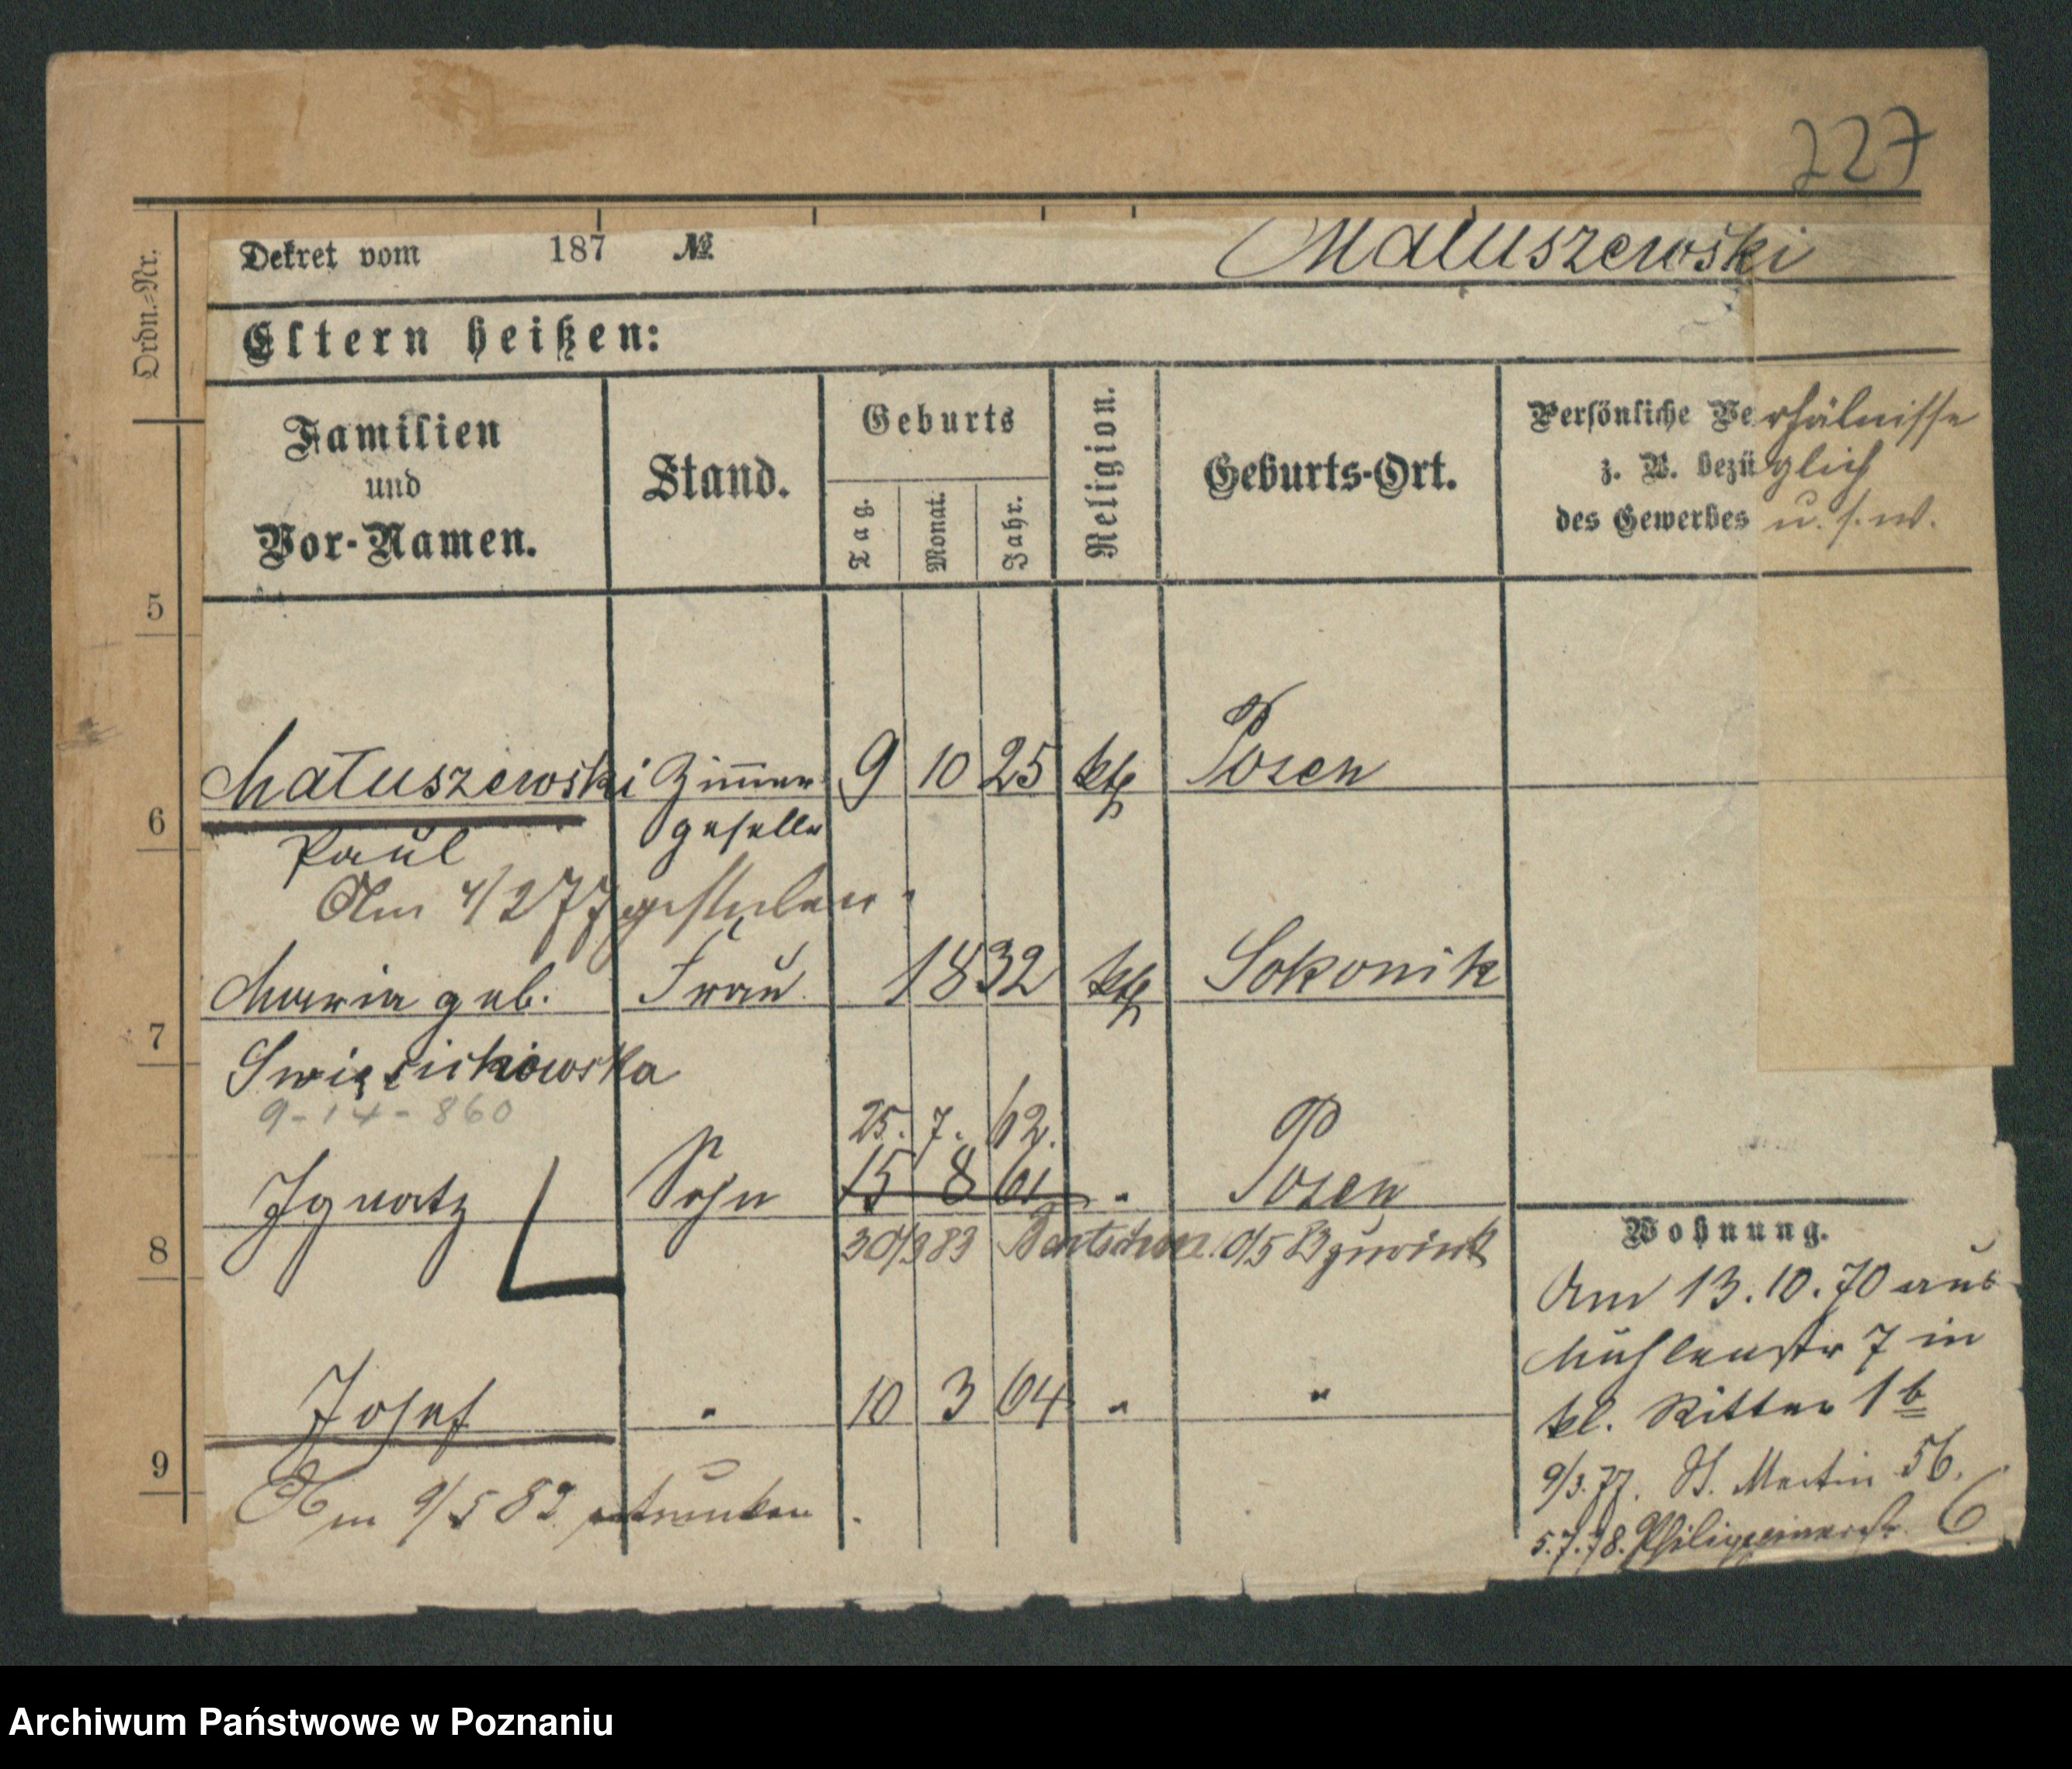 227
Ordn.-Nr.
Dekret vom 187 №
Matuszewski
Eltern heißen:
Familien
und
Vor-Namen.
Stand.
Geburts
Tag.
Monat.
Jahr.
Religion.
Geburts-Ort.
Persönliche Verhälnisse
z. B. bezüglich
des Gewerbes u. s. w.
5
Matuszewski Zimmer 9 10 25 kth Posen
6
Paul geselle
Am 4/2 77 gestorben.
Maria geb. Frau 1832 kth Sokonik
7
Swięcichowska
9-14-860
25. 7. 62.
Ignatz Sohn 15 8 61 " Posen
8
30/3 83
Josef " 10 3 64 " "
9
Am 9/5 82 ertrunken.
Wohnung.
Am 13.10.70 aus
Mühlenstr 7 in
kl. Ritter 1b
9/3.77. St. Martin 56.
5.7.78. Philippinerstr. 6
Archiwum Państwowe w Poznaniu